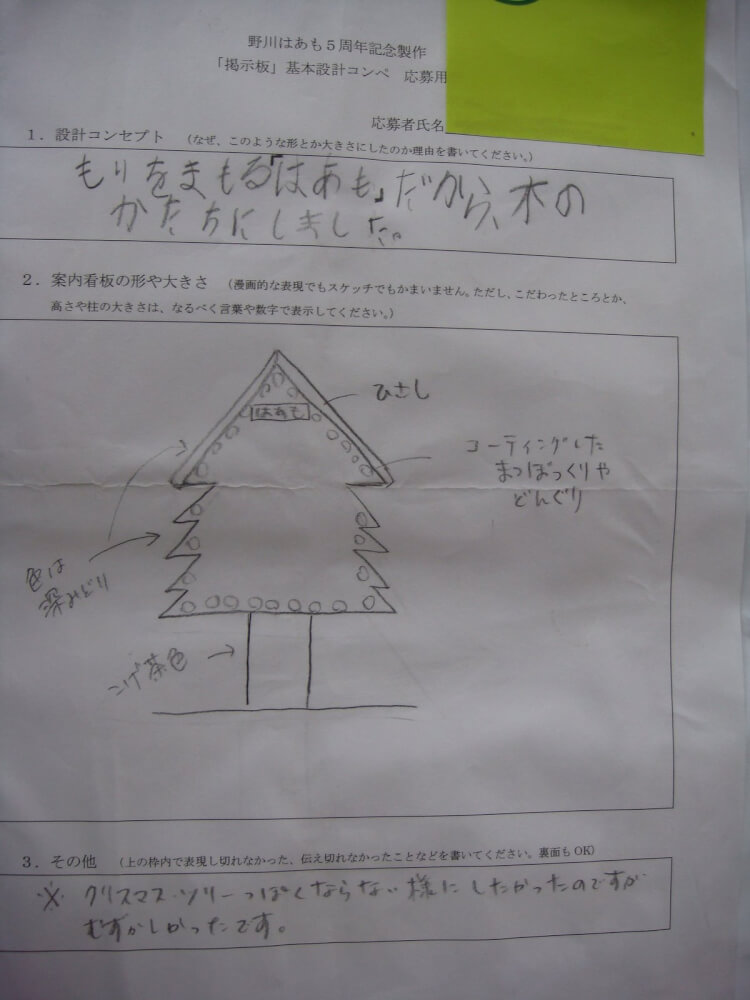 野川はあも5周年記念製作
「掲示板」基本設計コンペ 応募用
応募者氏名
1．設計コンセプト （なぜ、このような形とか大きさにしたのか理由を書いてください。）
もりをまもる「はあも」だから、木の
かたちにしました。
2．案内看板の形や大きさ （漫画的な表現でもスケッチでもかまいません。ただし、こだわったところとか、
高さや柱の大きさは、なるべく言葉や数字で表示してください。）
ひさし
はあも
コーティングした
まつぼっくりや
どんぐり
色は
深みどり
こげ茶色
3．その他 （上の枠内で表現し切れなかった、伝え切れなかったことなどを書いてください。裏面もOK）
※ クリスマス・ツリーっぽくならない様にしたかったのですが
むずかしかったです。